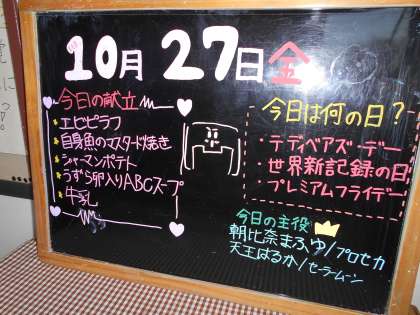 10月 27日 金
今日の献立
エビピラフ
白身魚のマスタード焼き
シャーマンポテト
うずら卵入りABCスープ
牛乳
今日は何の日?
・テディベアズ・デー
・世界新記録の日
・プレミアムフライデー
今日の主役
朝比奈まふゆ/プロセカ
天王はるか/セーラームーン